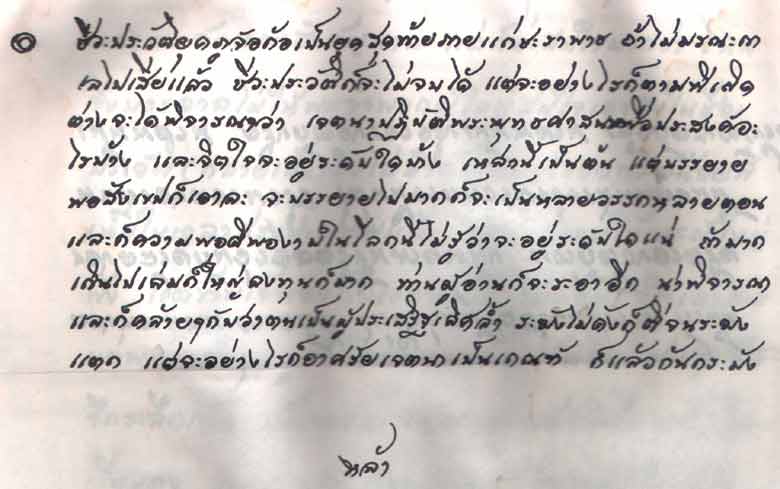 ชีวะประวัติยุคภูจ้อก้อเป็นยุคสุดท้ายภายแก่ชะราพาธ ถ้าไม่มรณะกา
เลไปเสียแล้ว ชีวะประวัติก็จะไม่จบได้ แต่จะอย่างไรก็ตามทีเถิด
ต่างจะได้พิจารณาว่า เจตนาปฏิบัติพระพุทธศาสนาเพื่อประสงค์อะ
ไรบ้าง และจิตใจจะอยู่ระดับใดบ้าง เหล่านี้เป็นต้น แต่บรรยาย
พอสังเขปก็เอาละ จะบรรยายไปมากก็จะเป็นหลายวรรคหลายตอน
และก็ความพอดีพองามในโลกนี้ไม่รู้ว่าจะอยู่ระดับใดแน่ ถ้ามาก
เกินไปเล่มก็ใหญ่ลงทุนก็มาก ท่านผู้อ่านก็จะระอาอีก น่าพิจารณา
และก็คล้ายๆกับว่าตนเป็นผู้ประเสริฐเลิศล้ำ ระฆังไม่ดังก็ตีจนระฆัง
แตก แต่จะอย่างไรก็อาศรัยเจตนาเป็นเกณฑ์ ก็แล้วกันกระมัง
หล้า